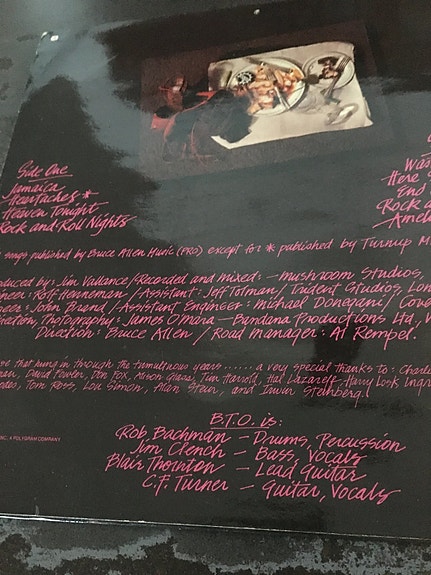 Side One
Jamaica
Heartaches *
Heaven Tonight
Rock and Roll Nights
Here
End
Rock a
Ameli
songs published by Bruce Allen Music (PRO) except for * published by Turnup M
duced by: Jim Vallance/Recorded and mixed: - Mushroom Studios,
neer: Rolf Henneman / Assistant: Jeff Tolman / Trident Studios, Lon
eer: John Brand / Assistant Engineer: Michael Donegani /
Photography: James O'Mara - Bandana Productions Ltd, V
Direction: Bruce Allen / Road Manager: Al Rempel.
se that hung in through the tumultuous years...... a very special thanks to: Charli
man, David Fowler, Don Fox, Alison Glass, Tim Harrold, Hal Lazareff, Harry Losk, Ingr
Tom Ross, Lou Simon, Allan Stein, and Irwin Steinberg.
INC. A POLYGRAM COMPANY
B.T.O. is:
Rob Bachman - Drums, Percussion
Jim Clench - Bass, Vocals
Blair Thornton - Lead Guitar
C.F. Turner - Guitar, Vocals